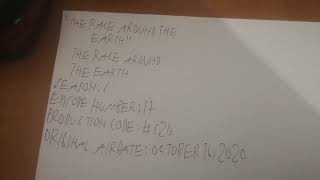 "THE RACE AROUND THE
EARTH"
THE RACE AROUND
THE EARTH
SEASON: 1
EPISODE NUMBER: 17
PRODUCTION CODE:
ORIGINAL AIRDATE: OCTOBER 16, 2020